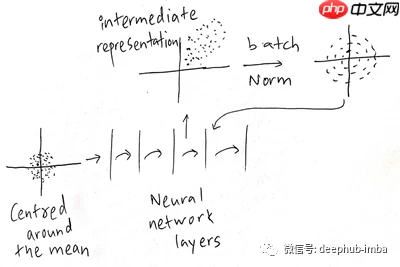 intermediate
representation
batch
Norm
php 中文网
Centred
around
the mean
Neural
network
layers
微信号: deephub-imba